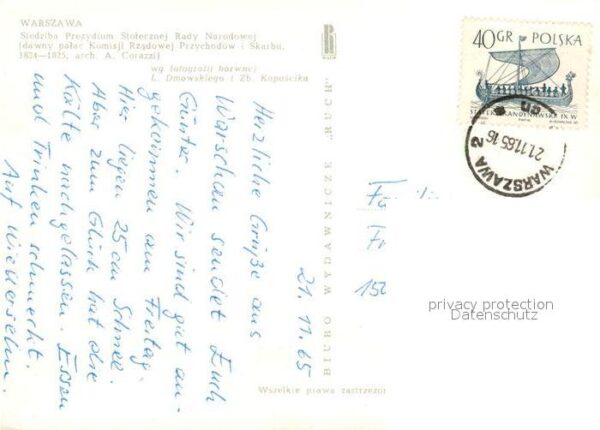 WARSZAWA
Siedziba Prezydium Stołecznej Rady Narodowej
(dawny pałac Komisji Rządowej Przychodów i Skarbu,
1824—1825, arch. A. Corazzi)
wg fotografii barwnej
L. Dmowskiego i Zb. Kopuścika
BIURO WYDAWNICZE "RUCH"
Wszelkie prawa zastrzeżon
21.11.65
Herzliche Grüße aus
Warschau sendet Euch
Günter. Wir sind gut an-
gekommen am Freitag.
Hier liegen 25 cm Schnee.
Aber zum Glück hat die
Kälte nachgelassen. Essen
und Trinken schmeckt.
Auf Wiedersehn.
Fa
Fr
152
40 GR POLSKA
SKANDYNAWSKA IX W
WARSZAWA 2
21.11.65 16
privacy protection
Datenschutz